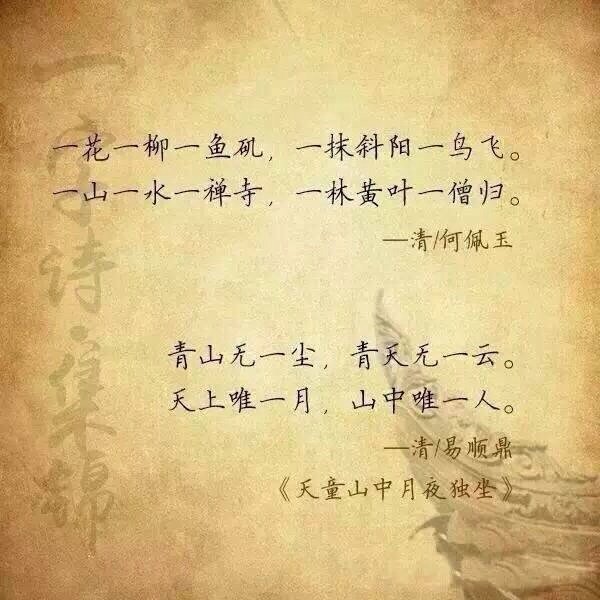 一字诗集锦
一花一柳一鱼矶，一抹斜阳一鸟飞。
一山一水一禅寺，一林黄叶一僧归。
—清/何佩玉
青山无一尘，青天无一云。
天上唯一月，山中唯一人。
—清/易顺鼎
《天童山中月夜独坐》